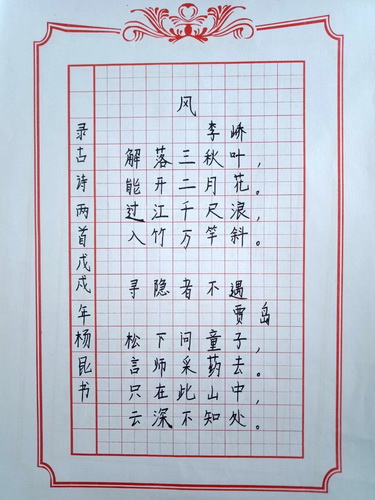 风
李峤
解落三秋叶，
能开二月花。
过江千尺浪，
入竹万竿斜。
寻隐者不遇
贾岛
松下问童子，
言师采药去。
只在此山中，
云深不知处。
录古诗两首戊戌年杨昆书